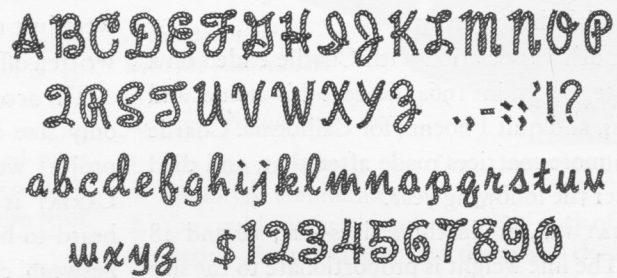 ABCDEFGHIJKLMNOP
QRSTUVWXYZ .,-:;'!?
abcdefghijklmnopqrstuv
wxyz $1234567890